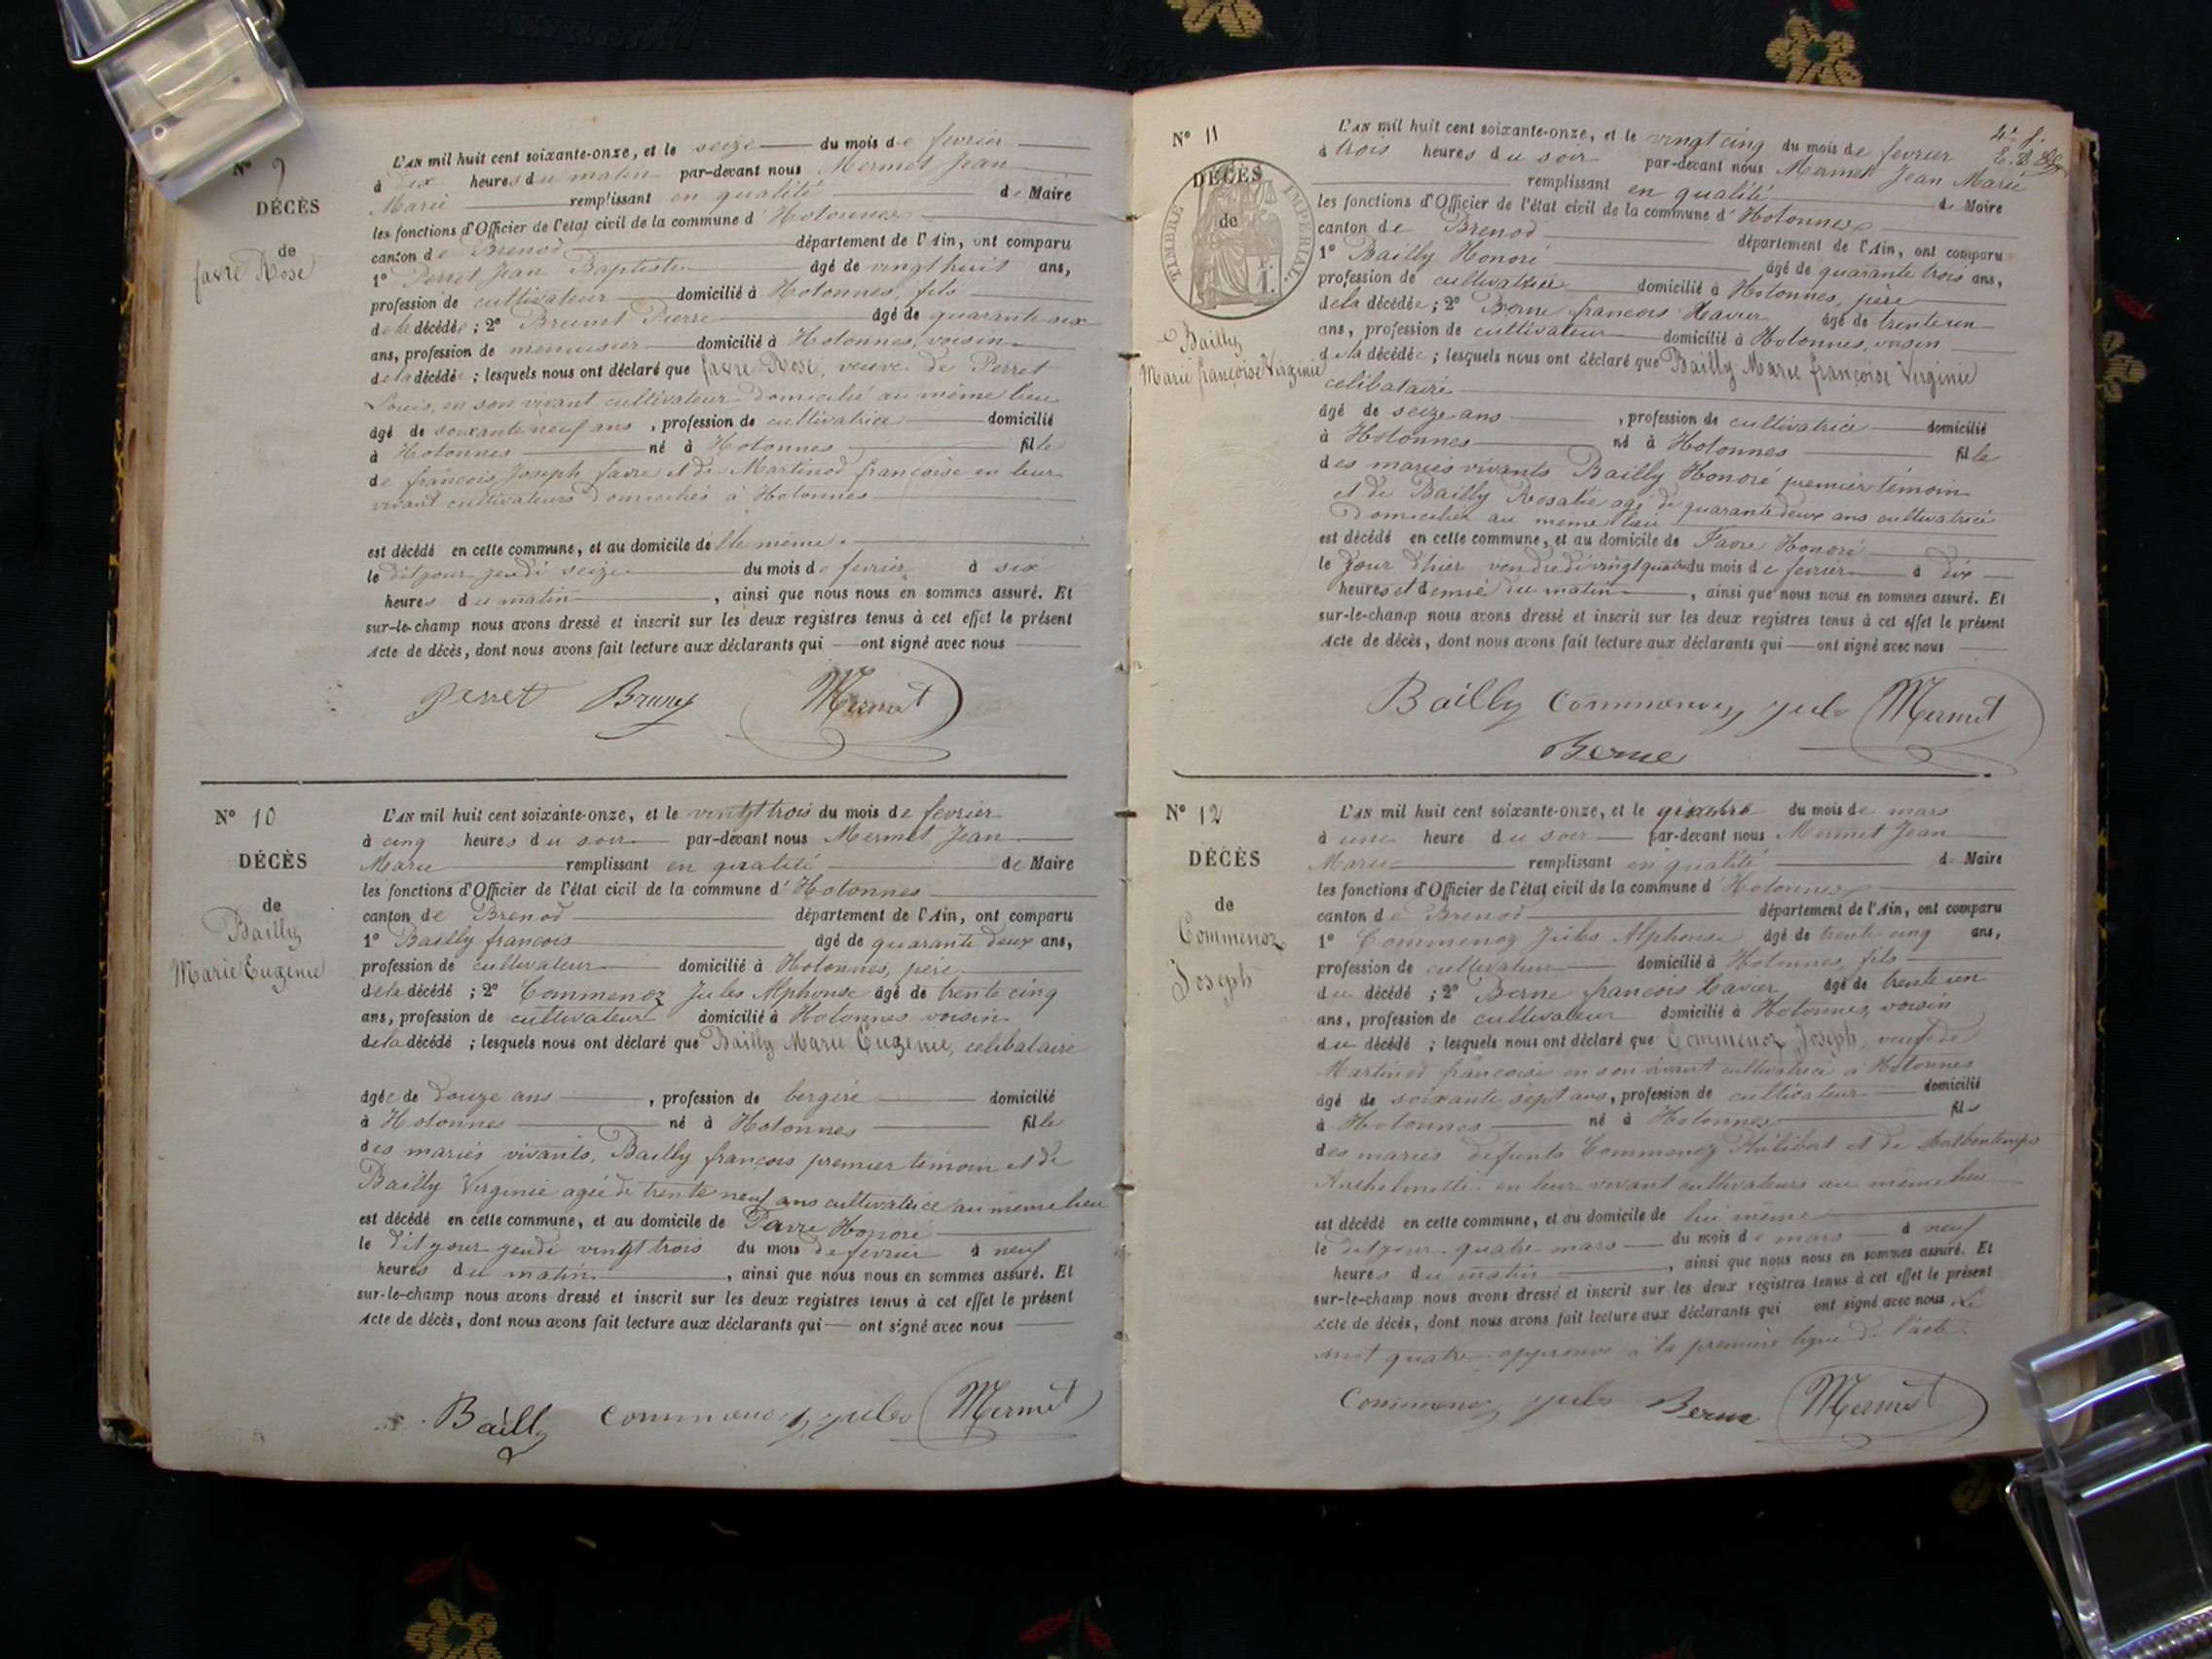 N° 9
DÉCÈS
de
favre Rose
L'AN mil huit cent soixante-onze, et le seize du mois de fevrier
à dix heures du matin par-devant nous Mermet Jean
Marie remplissant en qualité de Maire
les fonctions d'Officier de l'état civil de la commune d'Hotonnes
canton de Brenod département de l'Ain, ont comparu
1° Perret Jean Baptiste âgé de vingt huit ans,
profession de cultivateur domicilié à Hotonnes, fils
de la décédée ; 2° Brunet Pierre âgé de quarante six
ans, profession de menuisier domicilié à Hotonnes, voisin
de la décédée ; lesquels nous ont déclaré que favre Rose, veuve de Perret
Louis, en son vivant cultivateur domicilié au même lieu
âgé de soixante neuf ans, profession de cultivatrice domicilié
à Hotonnes né à Hotonnes fille
de françois Joseph favre et de Martinod françoise en leur
vivant cultivateurs domiciliés à Hotonnes
est décédé en cette commune, et au domicile d'elle même.
le dit jour jeudi seize du mois de fevrier à six
heures du matin, ainsi que nous nous en sommes assuré. Et
sur-le-champ nous avons dressé et inscrit sur les deux registres tenus à cet effet le présent
Acte de décès, dont nous avons fait lecture aux déclarants qui ont signé avec nous
Perret Brunet Mermet
N° 10
DÉCÈS
de
Bailly
Marie Eugenie
L'AN mil huit cent soixante-onze, et le vingt trois du mois de fevrier
à cinq heures du soir par-devant nous Mermet Jean
Marie remplissant en qualité de Maire
les fonctions d'Officier de l'état civil de la commune d'Hotonnes
canton de Brenod département de l'Ain, ont comparu
1° Bailly francois âgé de quarante deux ans,
profession de cultivateur domicilié à Hotonnes, père
de la décédé ; 2° Commenoz Jules Alphonse âgé de trente cinq
ans, profession de cultivateur domicilié à Hotonnes voisin
de la décédé ; lesquels nous ont déclaré que Bailly Marie Eugenie, celibataire
âgée de douze ans, profession de bergère domicilié
à Hotonnes né à Hotonnes fille
des mariés vivants, Bailly françois premier témoin et de
Bailly Virginie agée de trente neuf ans cultivatrice au même lieu
est décédé en cette commune, et au domicile de Favre Honoré
le dit jour jeudi vingt trois du mois de fevrier à neuf
heures du matin, ainsi que nous nous en sommes assuré. Et
sur-le-champ nous avons dressé et inscrit sur les deux registres tenus à cet effet le présent
Acte de décès, dont nous avons fait lecture aux déclarants qui ont signé avec nous
Bailly Commenoz jules Mermet
N° 11
DÉCÈS
de
TIMBRE IMPERIAL
Bailly
Marie françoise Virginie
L'AN mil huit cent soixante-onze, et le vingt cinq du mois de fevrier
à trois heures du soir par-devant nous Mermet Jean Marie
remplissant en qualité de Maire
les fonctions d'Officier de l'état civil de la commune d'Hotonnes
canton de Brenod département de l'Ain, ont comparu
1° Bailly Honoré âgé de quarante trois ans,
profession de cultivateur domicilié à Hotonnes, père
de la décédée ; 2° Berne francois Xavier âgé de trente un
ans, profession de cultivateur domicilié à Hotonnes, voisin
de la décédée ; lesquels nous ont déclaré que Bailly Marie françoise Virginie
celibataire
âgé de seize ans, profession de cultivatrice domicilié
à Hotonnes né à Hotonnes fille
des mariés vivants Bailly Honoré premier témoin
et de Bailly Rosalie agé de quarante deux ans cultivatrice
domiciliée au même lieu
est décédé en cette commune, et au domicile de Favre Honoré
le jour d'hier vendredi vingt quatre du mois de fevrier à dix
heures et demie du matin, ainsi que nous nous en sommes assuré. Et
sur-le-champ nous avons dressé et inscrit sur les deux registres tenus à cet effet le présent
Acte de décès, dont nous avons fait lecture aux déclarants qui ont signé avec nous
Bailly Commenoz jules Mermet
Berne
N° 12
DÉCÈS
de
Commenoz
Joseph
L'AN mil huit cent soixante-onze, et le quatre du mois de mars
à une heure du soir par-devant nous Mermet Jean
Marie remplissant en qualité de Maire
les fonctions d'Officier de l'état civil de la commune d'Hotonnes
canton de Brenod département de l'Ain, ont comparu
1° Commenoz Jules Alphonse âgé de trente cinq ans,
profession de cultivateur domicilié à Hotonnes, fils
du décédé ; 2° Berne francois Xavier âgé de trente un
ans, profession de cultivateur domicilié à Hotonnes, voisin
du décédé ; lesquels nous ont déclaré que Commenoz Joseph, veuf de
Martinod françoise en son vivant cultivatrice à Hotonnes
âgé de soixante sept ans, profession de cultivateur domicilié
à Hotonnes né à Hotonnes fils
des mariés défunts Commenoz Philibert et de
Anthelmette en leur vivant cultivateurs au même lieu
est décédé en cette commune, et au domicile de lui même
le dit jour quatre mars du mois de mars à neuf
heures du matin, ainsi que nous nous en sommes assuré. Et
sur-le-champ nous avons dressé et inscrit sur les deux registres tenus à cet effet le présent
Acte de décès, dont nous avons fait lecture aux déclarants qui ont signé avec nous Le
mot quatre approuvé à la première ligne de l'acte.
Commenoz jules Berne Mermet